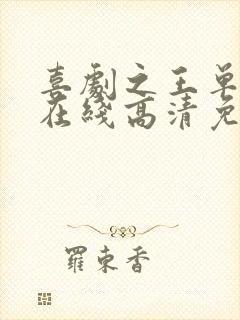 喜劇之王单
在綫高清免
羅東香